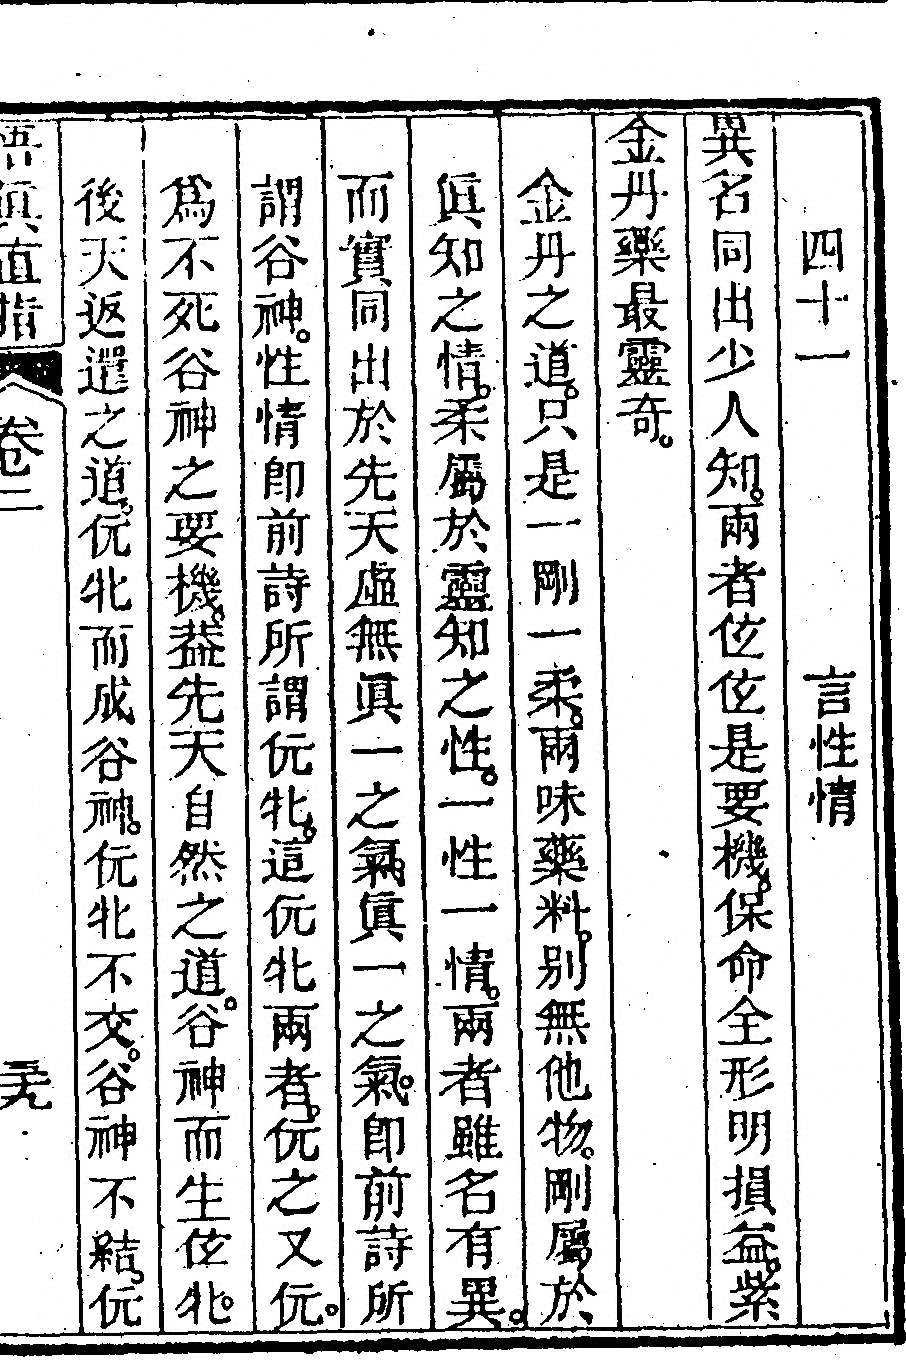 四十一　言性情
異名同出少人知。兩者伭伭是要機。保命全形明損益。紫
金丹藥最靈奇。
金丹之道。只是一剛一柔。兩味藥料。別無他物。剛屬於
眞知之情。柔屬於靈知之性。一性一情。兩者雖名有異。
而實同出於先天虛無眞一之氣。眞一之氣。卽前詩所
謂谷神。性情卽前詩所謂伭牝。這伭牝兩者。伭之又伭。
爲不死谷神之要機。葢先天自然之道。谷神而生伭牝。
後天返還之道。伭牝而成谷神。伭牝不交。谷神不結。伭
悟眞直指　卷二